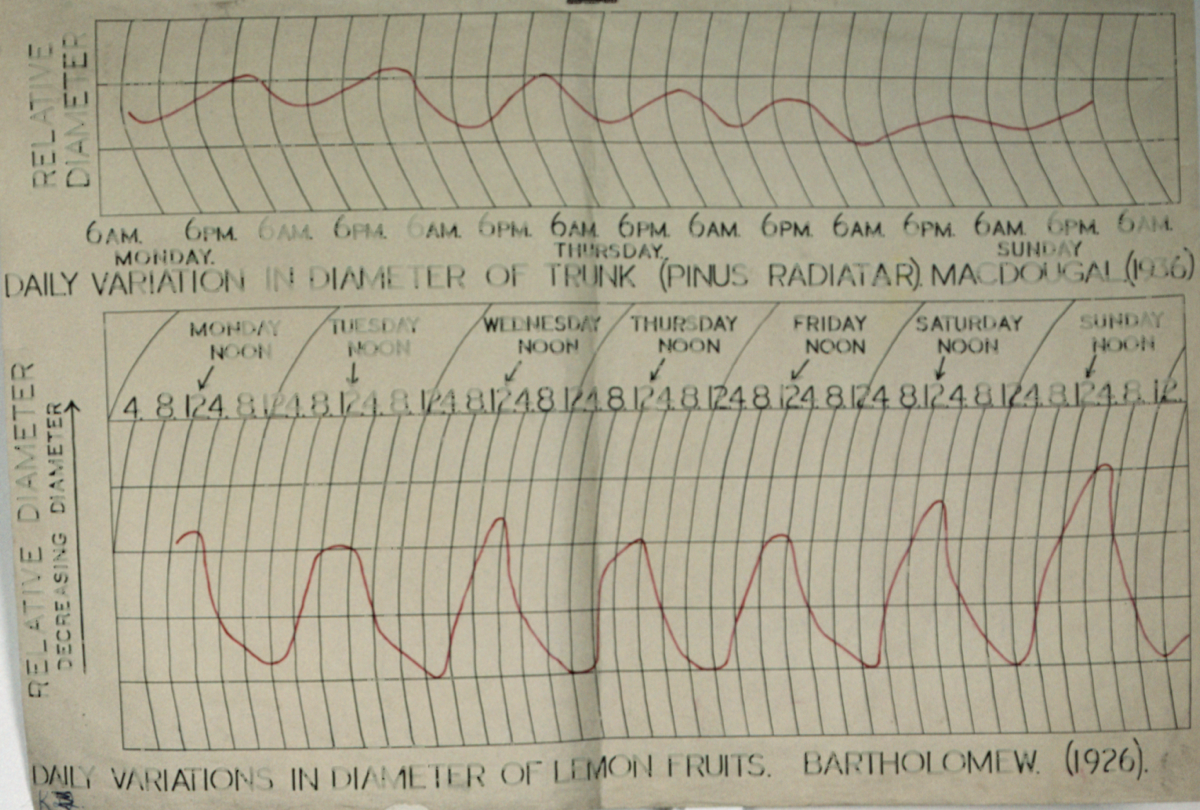 RELATIVE
DIAMETER
6AM. 6PM. 6AM. 6PM. 6AM. 6PM. 6AM. 6PM. 6AM. 6PM. 6AM. 6PM. 6AM. 6PM. 6AM.
MONDAY. THURSDAY. SUNDAY
DAILY VARIATION IN DIAMETER OF TRUNK (PINUS RADIATAR). MACDOUGAL.(1936)
MONDAY TUESDAY WEDNESDAY THURSDAY FRIDAY SATURDAY SUNDAY
NOON NOON NOON NOON NOON NOON NOON
4. 8. 12 4. 8. 12 4. 8. 12 4. 8. 12 4. 8. 12 4. 8. 12 4. 8. 12 4. 8. 12 4. 8. 12 4. 8. 12 4. 8. 12 4. 8. 12 4. 8. 12 4. 8. 12.
RELATIVE DIAMETER
DECREASING DIAMETER
DAILY VARIATIONS IN DIAMETER OF LEMON FRUITS. BARTHOLOMEW. (1926).